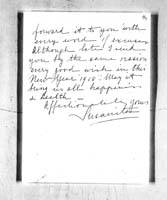 forward it to you with
every word of excuses
Although late I send
you by the same reason
every good wish in this
New Year 1900. May it
bring us all happiness
& health
Affectionately yours